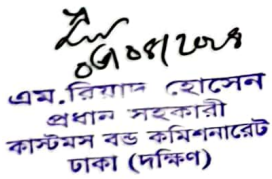 ০৫/০৪/২০২৪
এম. রিয়াদ হোসেন
প্রধান সহকারী
কাস্টমস বন্ড কমিশনারেট
ঢাকা (দক্ষিণ)